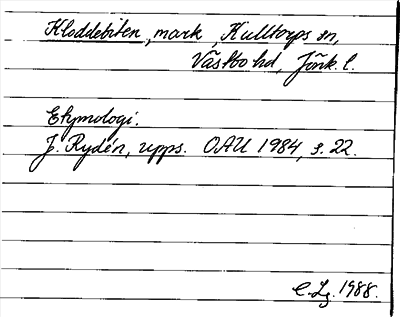 Kloddebiten, mark, Kulltorps sn,
Västbo hd, Jönk. l.
Etymologi.
J. Rydén, upps. OAU 1984, s. 22.
C. Lg. 1988.